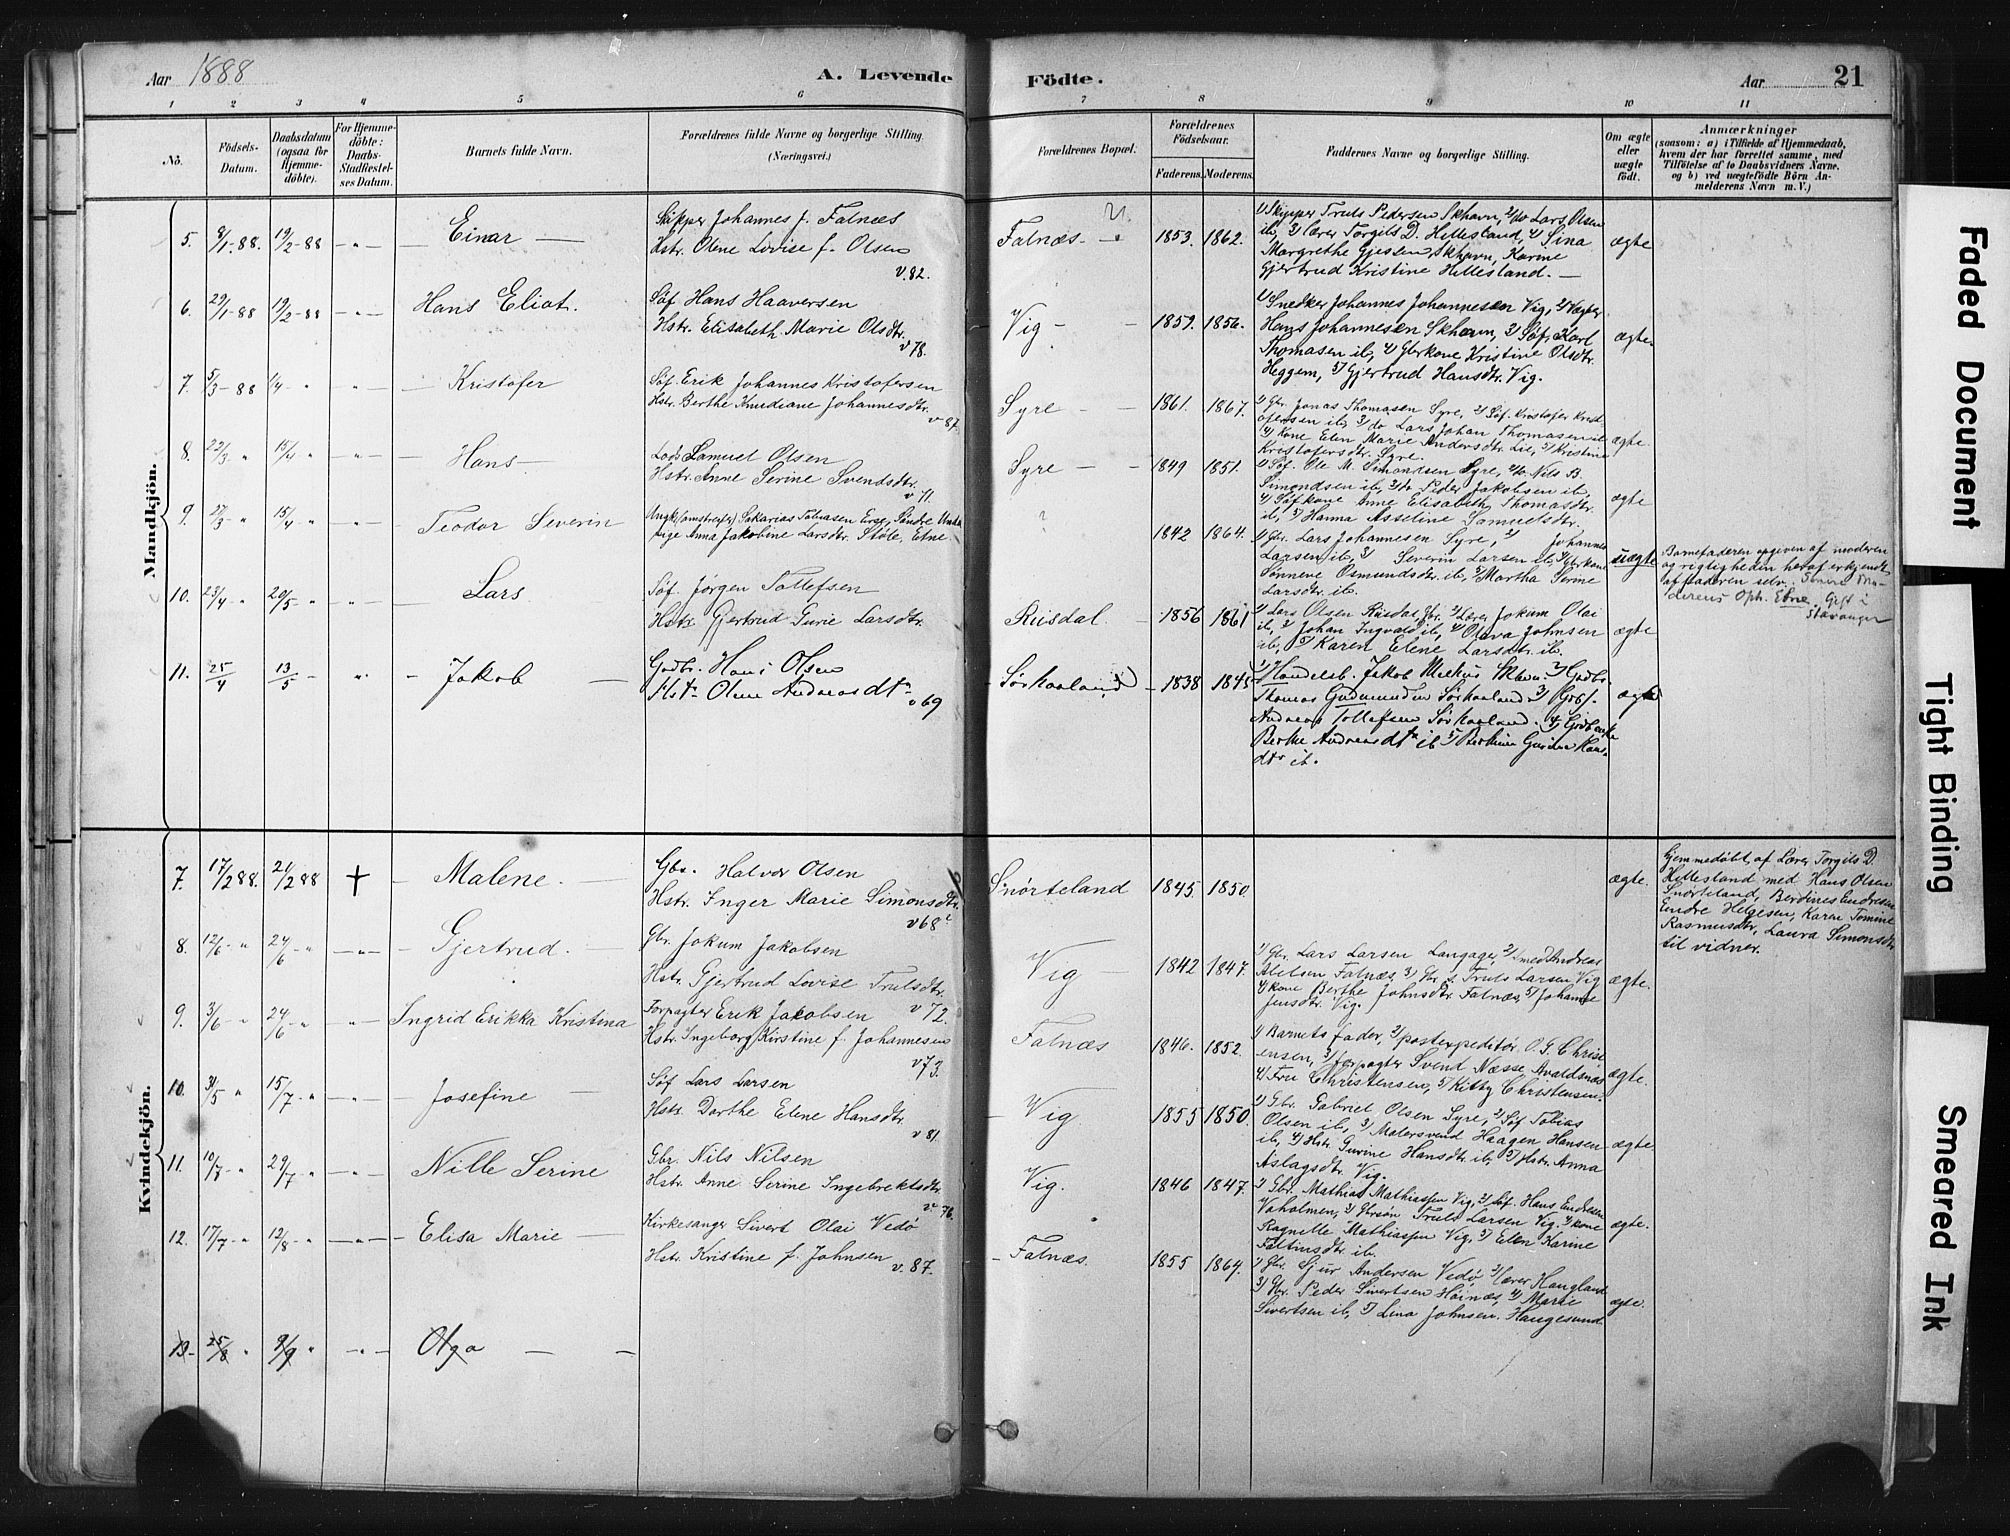 Aar 1888
A. Levende
Födte.
Aar
21
1 2 3 4 5 6 7 8 9 10 11
No.
Födsels-
Datum.
Daabsdatum
(ogsaa for
Hjemme-
döbte).
For Hjemme-
döbte:
Daabs-
Stadfæstel-
ses Datum.
Barnets fulde Navn.
Forældrenes fulde Navne og borgerlige Stilling.
(Næringsvei.)
Forældrenes Bopæl.
Forældrenes
Födselsaar.
Faderens. Moderens.
Faddernes Navne og borgerlige Stilling.
Om ægte
eller
uægte
födt.
Anmærkninger
(saasom: a) i Tilfælde af Hjemmedaab,
hvem der har forrettet samme, med
Tilföielse af to Daabsvidners Navne,
og b) ved uægtefödte Börn An-
melderens Navn m. V.)
Mandkjön.
5. 8/1-88. 19/2-88 -"- Einar
Skipper Johannes J. Falnæs
Hstr. Olene Lovise f. Olsen
v. 82.
Falnæs 1853. 1862.
1/ Skipper Truls Pedersen Skhavn, 2/ do Lars Olsen
ib, 3/ Lærer Torgils D. Hillesland, 4/ Sina
Margrethe Gjessen, Skhavn, Karine
Gjertrud Kristine Hillesland.
ægte
6. 29/1-88 19/2-88 -"- Hans Eliot.
Søf. Hans Haaversen
Hstr. Elisabeth Marie Olsdtr.
v 78.
Vig 1859. 1856.
1/ Snedker Johannes Johannesen Vig, 2/ Vægter
Hans Johannesen Skhavn, 3/ Søf. Karl
Thomasen ib, 4/ Gbrkone Kristine Olsdtr.
Heggem, 5/ Gjertrud Hansdtr. Vig.
ægte.
7. 5/3-88 1/4 " -"- Kristofer
Søf. Erik Johannes Kristofersen
Hstr. Berthe Knudiane Johannesdtr.
v 87.
Syre 1861. 1867.
1/ Gbr. Jonas Thomasen Syre, 2/ Søf. Kristofer Krist
ofersen ib, 3/ do Lars Johan Thomasen ib
4/ Kone Elen Marie Andersdtr. Lie, 5/ Kristine
Kristofersdtr. Syre.
ægte.
8. 22/3 " 15/4 " -"- Hans
Lods Samuel Olsen
Hstr. Anne Serine Svendsdtr.
v 71.
Syre 1849 1851.
1/ Søf. Ole M. Simondsen Syre, 2/ do. Nils B.
Simondsen ib, 3/ do Peder Jakobsen ib,
4/ Søfkone Anne Elisabeth Thomasdtr.
ib, 5/ Hanna Asseline Samuelsdtr.
ægte
9. 27/3 " 15/4 " -"- Teodor Severin
Ungk. (omstreifer) Sakarias Tobiasen
Pige Anna Jakobine Larsdtr. Støle, Etne
? 1842 1864.
1/ Gbr. Lars Johannesen Syre, 2/ Johannes
Larsen ib, 3/ Severin Larsen ib, 4/ Gbrkone
Sønneve Osmundsdtr. ib, 5/ Martha Serine
Larsdtr. ib.
uægte
Barnefaderen opgiven af moderen
og rigtigheden heraf erkjendt
af faderen selv.
Oph. Etne, Gift i
Stavanger
10. 23/4 " 20/5 " -"- Lars
Søf. Jørgen Tollefsen
Hstr. Gjertrud Gurie Larsdtr.
Risdal. 1856 1861
1/ Lars Olsen Risdal, Gbr. 2/ Lærer Jokum Olai
ib, 3/ Johan Ingvald ib, 4/ Olava Johnsen
ib, 5/ Karen Elene Larsdtr. ib.
ægte
11. 25/4 13/5 " Jakob
Gdbr. Hans Olsen
Hstr Oline Andreasdtr
v 69
Sørhaaland 1838 1845
1/ Handelsb. Jakob Skhvn 2/ Gdbr.
Thomas Gudmundsen Sørhaaland 3/ Gdbr.
Andreas Tollefsen Sørhaaland. 4/ Gdbr enke
Berthe Andreasdtr ib 5/ Berthine Hans
dtr ib.
ægte
Kvindekjön.
7. 17/2 88. 21/2 88 + Malene.
Gbr. Halvor Olsen
Hstr. Inger Marie Simonsdtr.
v 68
Snørteland 1845 1850.
ægte.
Hjemmedøbt af Lærer Torgils D.
Hillesland med Hans Olsen
Snørteland, Berdines Endresen
Endre Helgesen, Karen Tomine
Rasmusdtr, Laura Simonsdtr
til vidner.
8. 12/6 " 24/6 " -"- Gjertrud.
Gbr. Jokum Jakobsen
Hstr. Gjertrud Lovise Trulsdtr.
v 72.
Vig 1842 1847.
1/ Gbr. Lars Larsen Langager, 2/ smed Andreas
Abelsen Falnæs, 3/ Gbr. s. Truls Larsen Vig
4/ kone Berthe Johnsdtr. Falnæs, 5/ Johanne
Jensdtr. Vig.
ægte.
9. 3/6 " 24/6 " -"- Ingrid Erikka Kristina
Forpagter Erik Jakobsen
Hstr. Ingeborg Kirstine f. Johannesen
v 73.
Falnæs 1846. 1852.
1/ Barnets fader, 2/ postexpeditør O. G. Christ
ensen, 3/ forpagter Svend Næsse Avaldsnæs
4/ Fru Christensen, 5/ Kitty Christensen.
ægte.
10. 31/5 " 15/7 " -"- Josefine
Søf. Lars Larsen
Hstr. Dorthe Elene Hansdtr.
v 81.
Vig 1855 1850.
1/ Gbr. Gabriel Olsen Syre, 2/ Søf. Tobias
Olsen ib, 3/ Malersvend Haagen Hansen
ib, 4/ Hstr. Gurine Hansdtr. ib, 5/ Hstr. Anna
Aslagsdtr. Vig.
ægte.
11. 10/7 " 29/7 " -"- Nille Serine
Gbr. Nils Nilsen
Hstr. Anne Serine Ingebrektsdtr.
v. 76.
Vig. 1846 1847.
1/ Gbr. Mathias Mathiassen Vig, 2/ Søf. Hans Endresen
Vaholmen, 3/ Gbrsøn Truls Larsen Vig. 4/ kone
Ragnelle Mathiassen Vig, 5/ Elen Karine
Faltinsdtr. ib.
ægte.
12. 17/7 " 12/8 " -"- Elisa Marie
Kirkesanger Sivert Olai Vedø
Hstr. Kristine f. Johnsen
v. 87.
Falnæs. 1855 1864.
1/ Gbr. Sjur Andersen Vedø 2/ Lærer Haugland
3/ Gbr. Peder Sivertsen Høinæs, 4/ Marie
Sivertsen ib, 5/ Lina Johnsen. Haugesund.
ægte.
13 25/8 " 9/9 " -"- Olga
Faded Document
Tight Binding
Smeared Ink